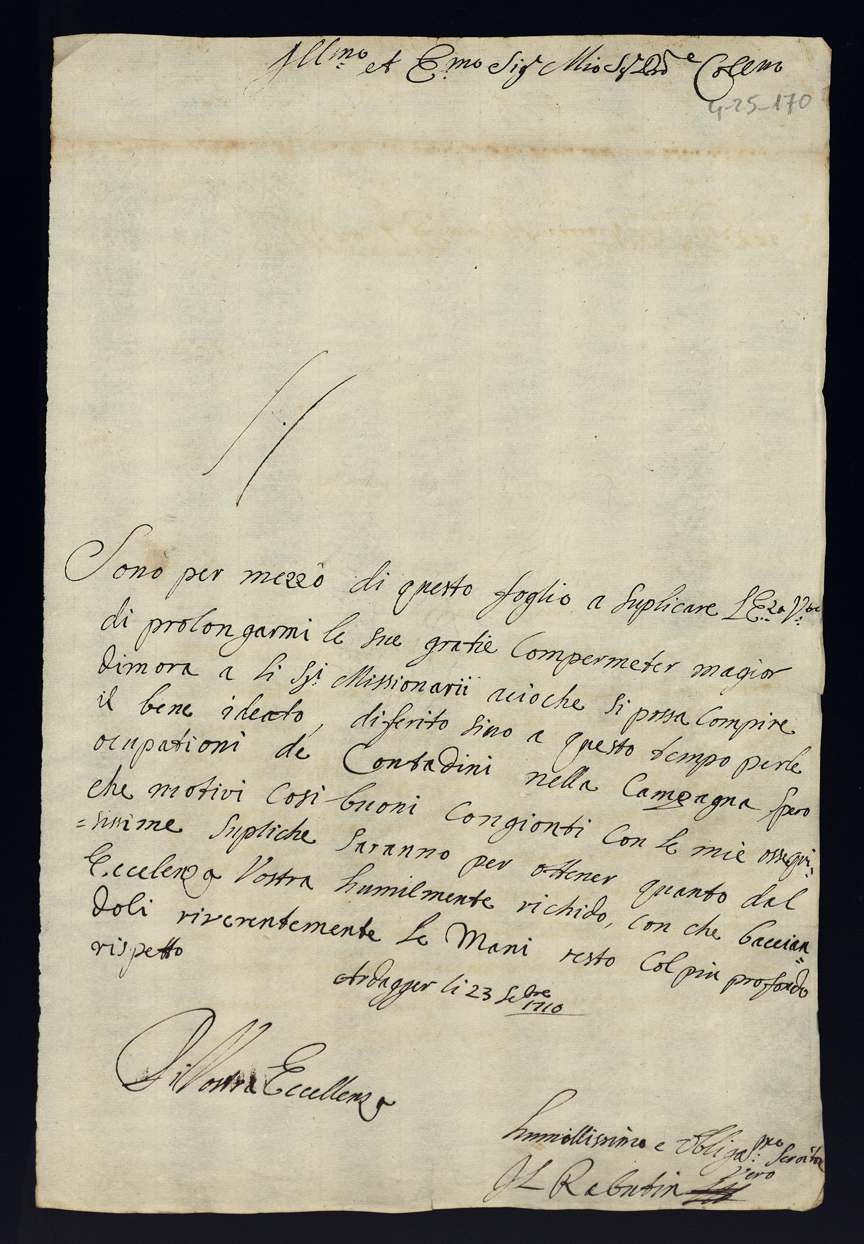 Illmo et Emo Sigr Mio Sigr Prone Colemo
4-25-170
Sono per mezzo di questo foglio a suplicare L'Eza Vra
di prolongarmi le sue gratie Compermeter magior
dimora a li Sgi Missionarii acioche si possa Compire
il bene ideato, diferito sino a questo tempo perle
ocupationi de Contadini nella Campagna spero
che motivi Cosi buoni Congionti Con le mie ossequi=
=sissime supliche saranno per ottener quanto dal
Eccelenza Vostra humilmente richido, con che baccian=
doli riverentemente le Mani resto Col piu profondo
rispetto
Ardagger li 23 Sebre
1710
Di Vostra Eccellenza
humillissimo e obligamo servitor
vero
Rabutin